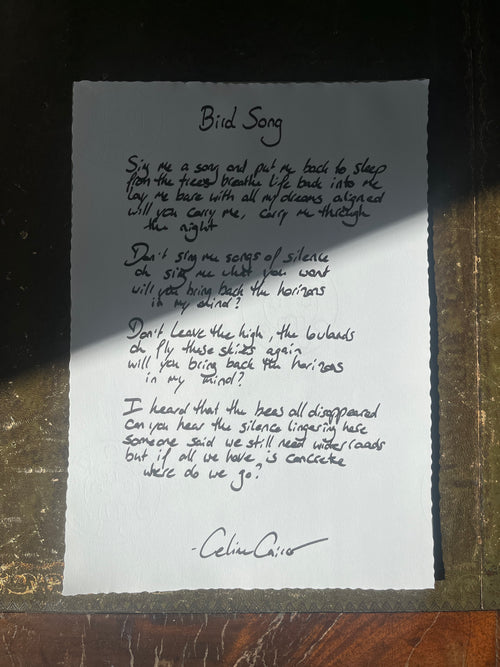 Bird Song
Sing me a song and put me back to sleep
from the trees breathe life back into me
lay me bare with all my dreams aligned
will you carry me, carry me through
the night
Don't sing me songs of silence
oh sing me what you want
will you bring back the horizons
in my mind?
Don't leave the high, the lowlands
oh fly these skies again
will you bring back the horizons
in my mind?
I heard that the bees all disappeared
can you hear the silence lingering here
someone said we still need wider roads
but if all we have is concrete
were do we go?
- Celine Cairo